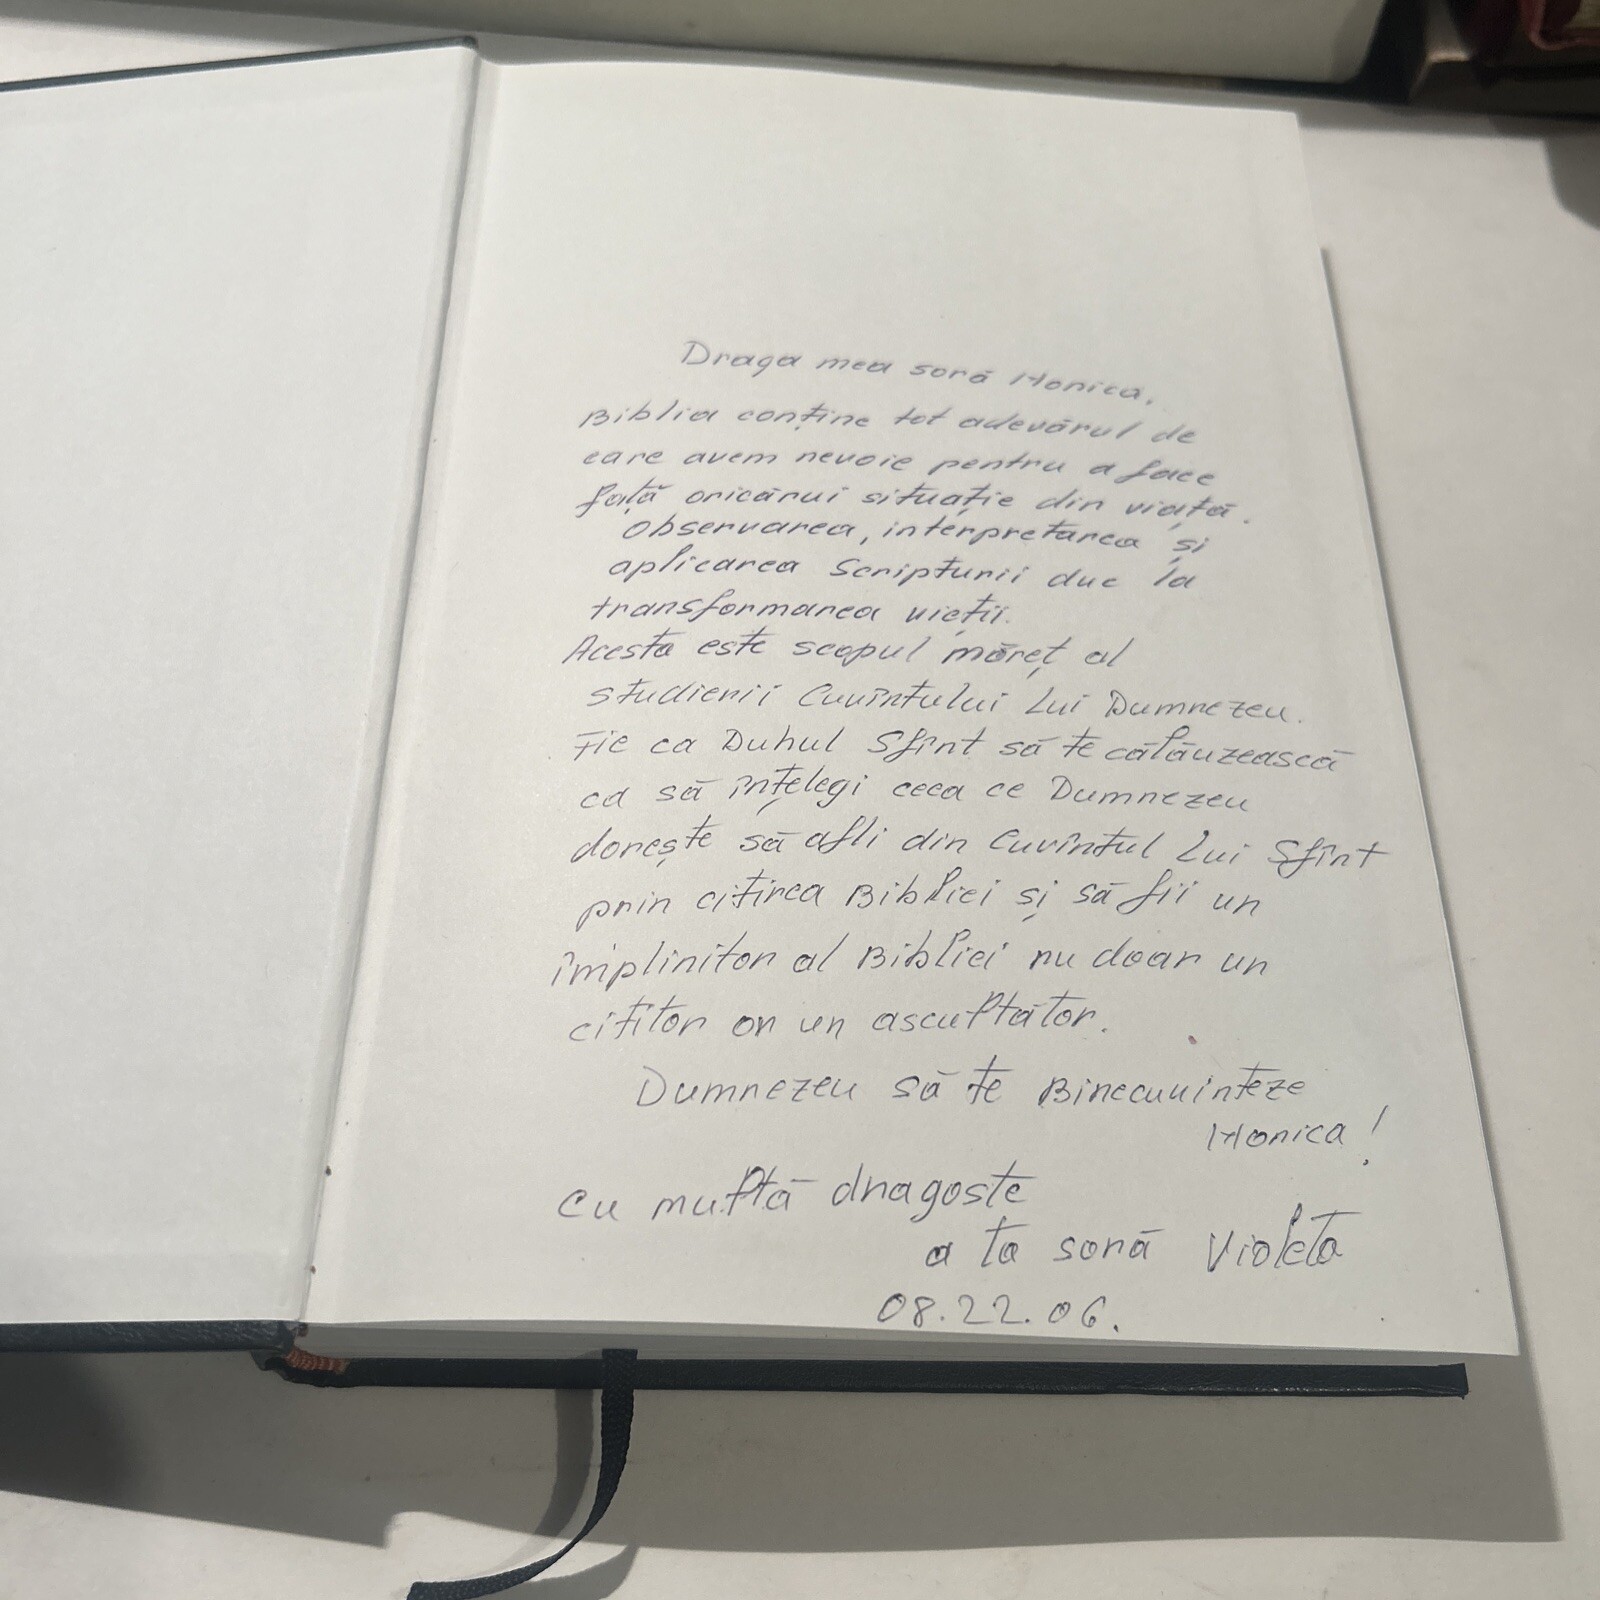 Draga mea soră Monica,
Biblia conține tot adevărul de
care avem nevoie pentru a face
față oricărui situație din viață.
Observarea, interpretarea și
aplicarea Scripturii duc la
transformarea vieții.
Acesta este scopul măreț al
studierii Cuvîntului Lui Dumnezeu.
Fie ca Duhul Sfînt să te călăuzească
ca să înțelegi ceea ce Dumnezeu
dorește să afli din Cuvîntul Lui Sfînt
prin citirea Bibliei și să fii un
împlinitor al Bibliei nu doar un
cititor or un ascultător.
Dumnezeu să te Binecuvinteze
Monica!
Cu multă dragoste
a ta soră Violeta
08.22.06.